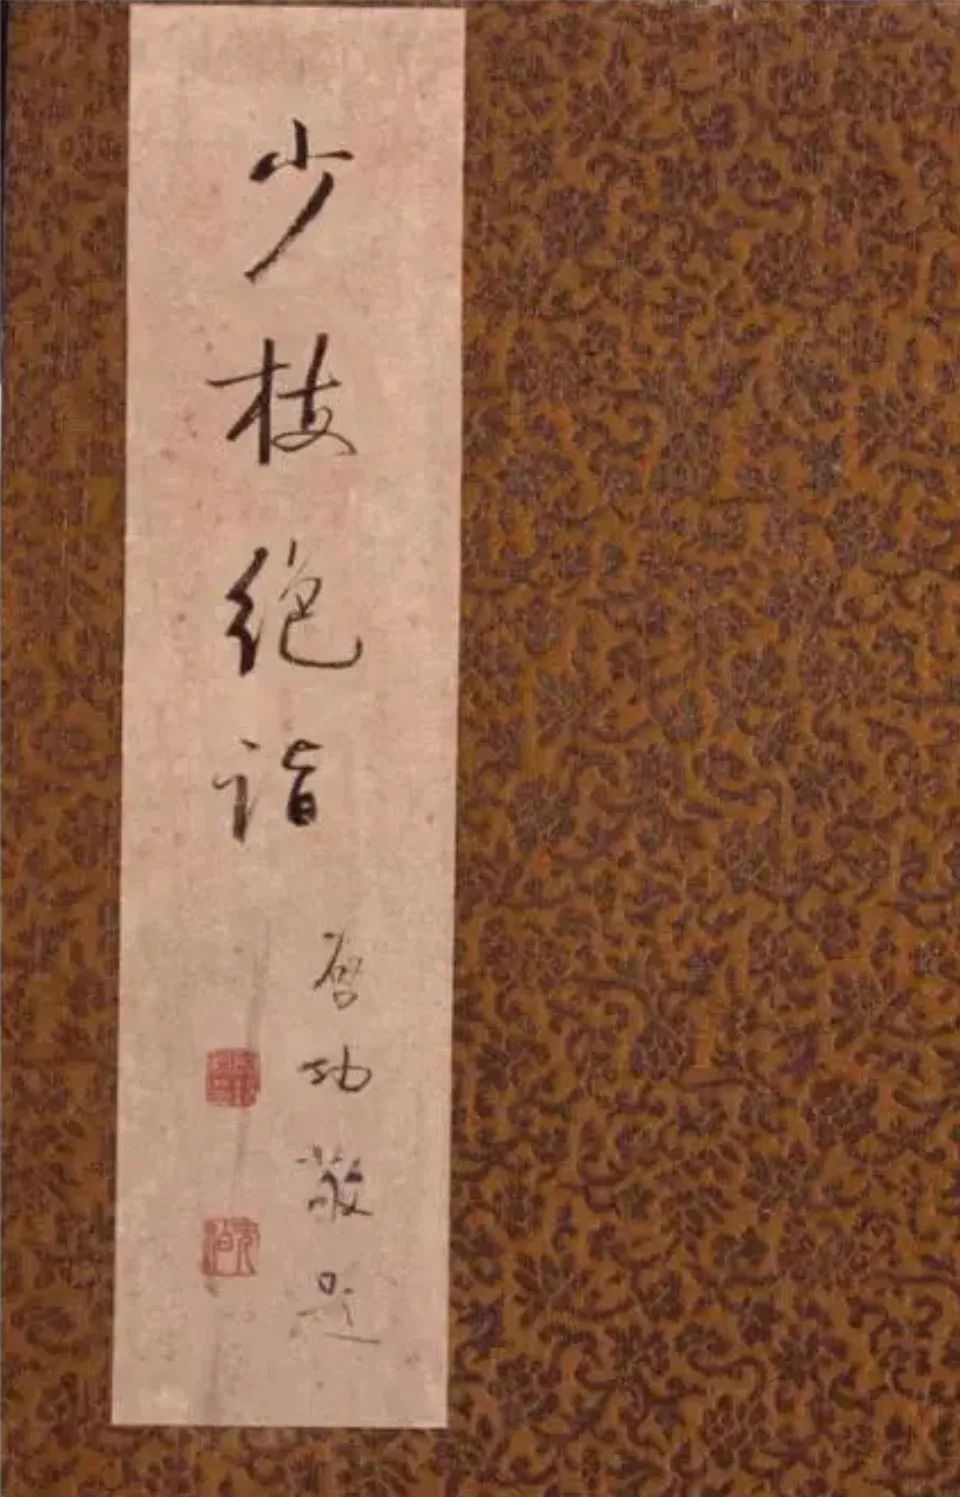 少枝绝诣
启功敬题